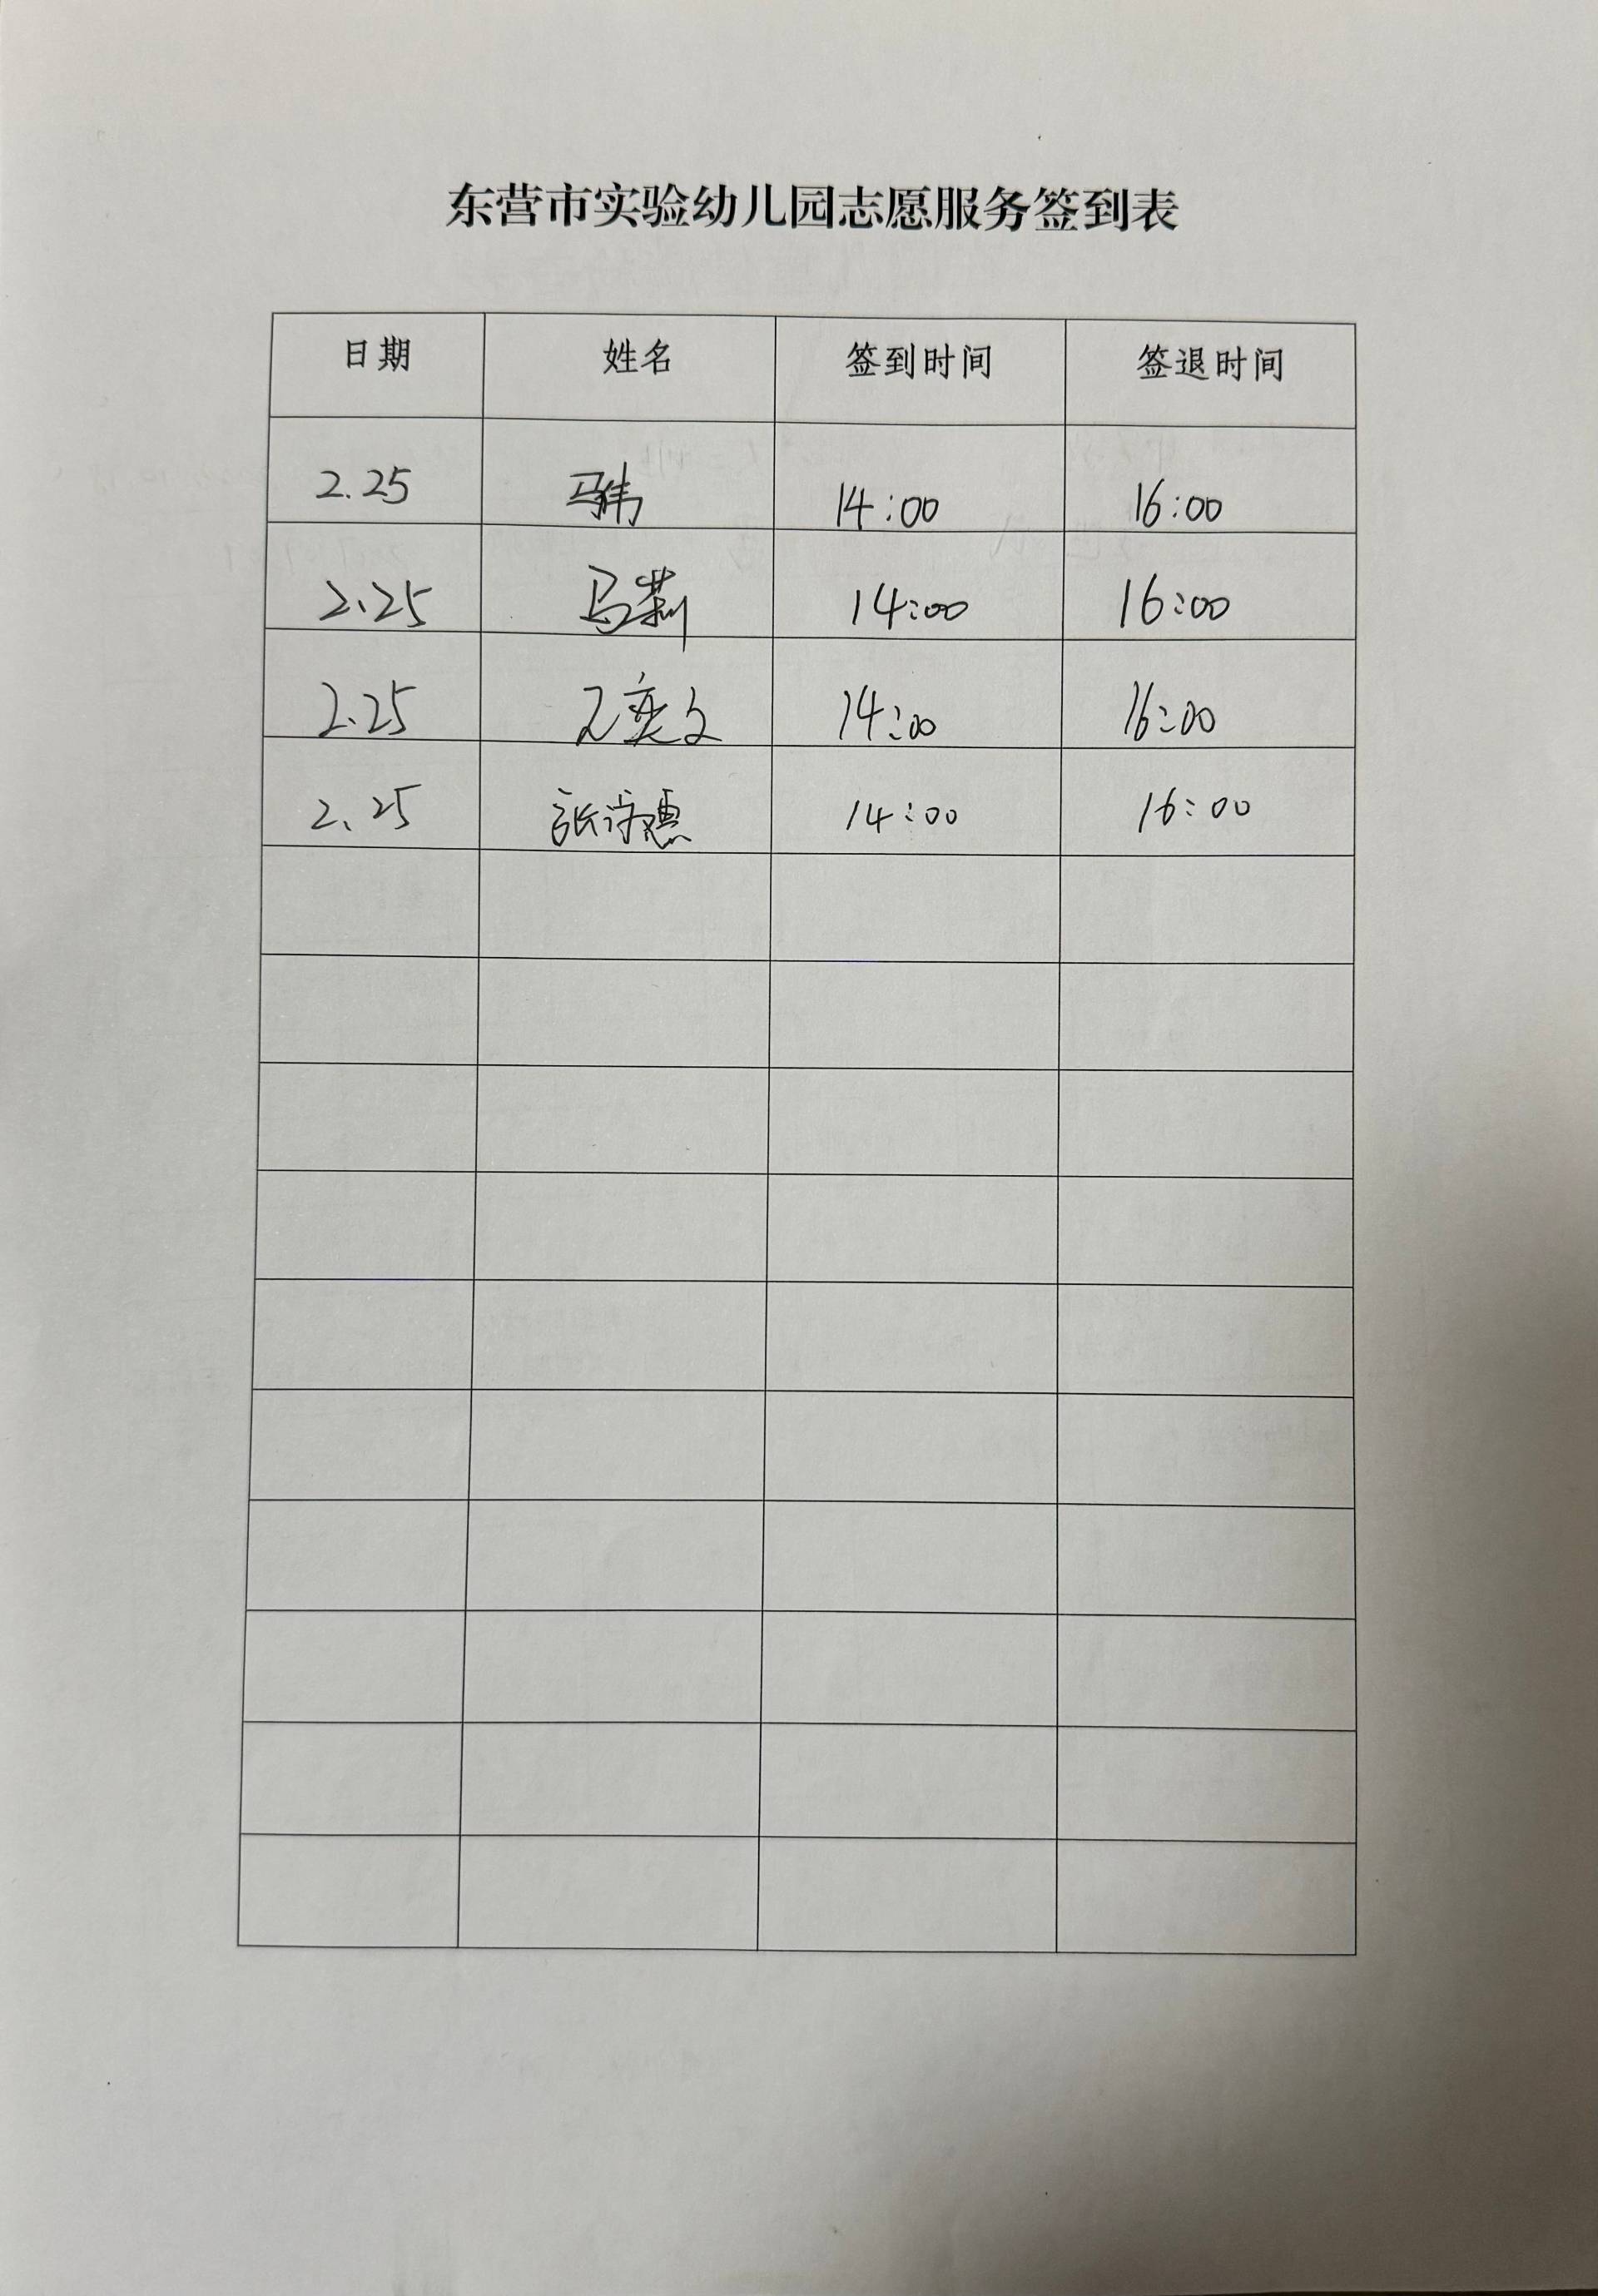 东营市实验幼儿园志愿服务签到表
日期 姓名 签到时间 签退时间
2.25 马伟 14:00 16:00
2.25 马莉 14:00 16:00
2.25 14:00 16:00
2.25 张 14:00 16:00